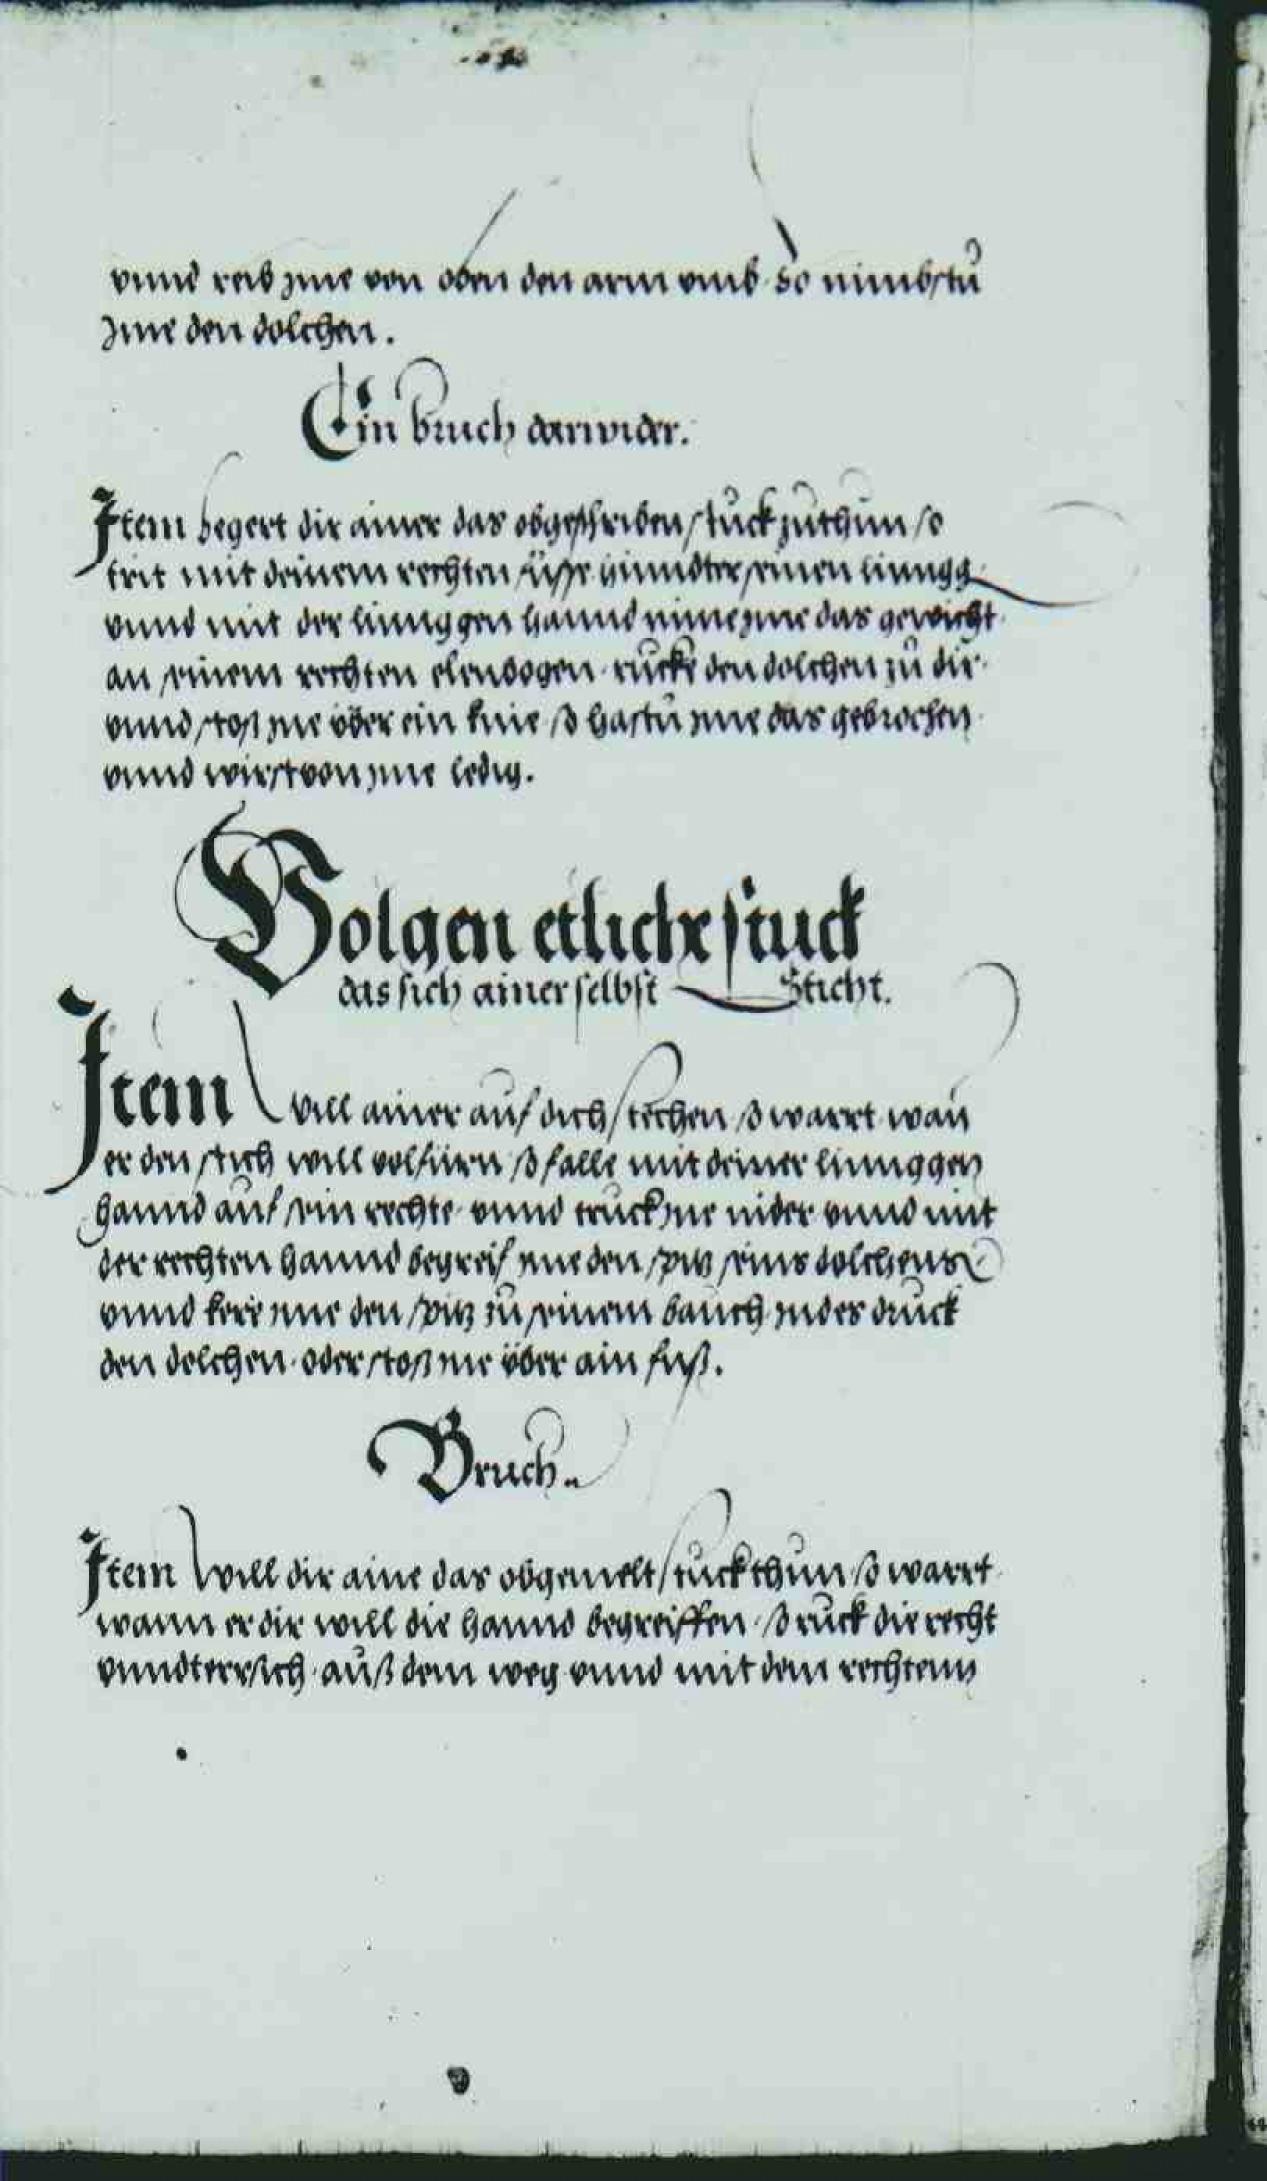 vnnd reib jme von oben den arm vmb. So nimbstu
jme den dolchen.
Ein bruch darwider.
Item begert dir ainer das obgeschriben stuck zuthun so
trit mit deinem rechten fuesse hinndter seinen linngg.
vnnd mit der linnggen hannd nime jme das gewicht
an seinem rechten elenbogen. rucke den dolchen zu dir.
vnnd stoß jne über ein knie. so hastu jme das gebrochen
vnnd wirst von jme ledig.
Volgen etliche stuck
das sich ainer selbst Sticht.
Item Will ainer auf dich stechen. so warrt wan
er den stich will volfüren. so falle mit deiner linnggen
hannd auf sein rechte. vnnd truck jne nider. vnnd mit
der rechten hannd begreif jme den spitz seins dolchens
vnnd kere jme den spitz zu seinem bauch. jndes druck
den dolchen. oder stoß jne über ain fuß.
Bruch.
Item Will dir aine das obgemelt stuck thun. so warrt.
wann er dir will die hannd begreiffen. so ruck die recht
vnndtersich. auß dem weg vnnd mit dem rechtenn